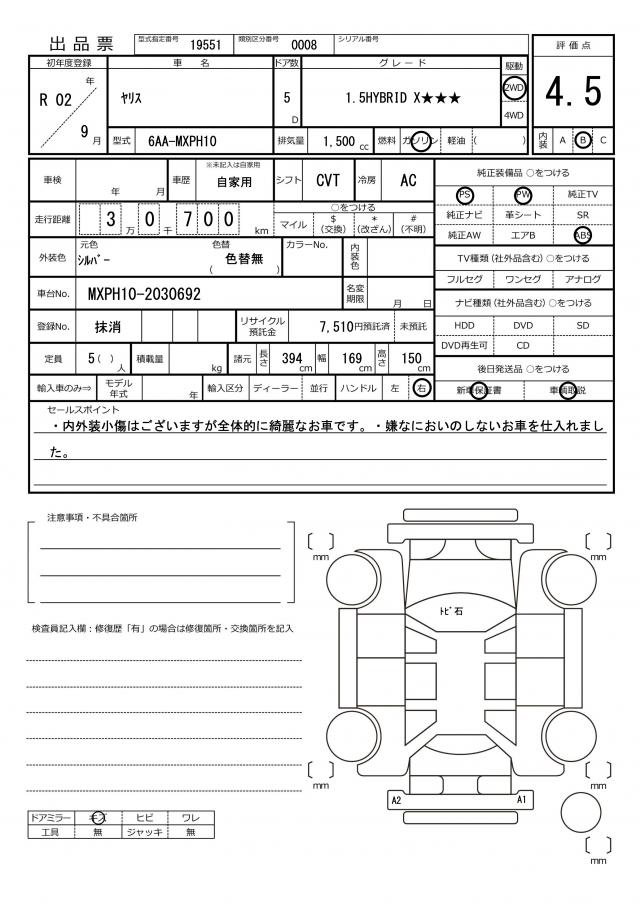 出品票
型式指定番号 19551 類別区分番号 0008 シリアル番号
初年度登録 車 名 ドア数 グレード 駆動 評価点
R 02 年 9 月 ﾔﾘｽ 5 D 1.5HYBRID X★★★ 2WD 4WD 4.5
型式 6AA-MXPH10 排気量 1,500 cc 燃料 ガソリン 軽油 ( ) 内装 A B C
車検 年 月 車歴 ※未記入は自家用 自家用 シフト CVT 冷房 AC
純正装備品 ○をつける
PS PW 純正TV
走行距離 3 万 0 千 7 0 0 km
○をつける
マイル $ (交換) * (改ざん) # (不明)
純正ナビ 革シート SR
純正AW エアB ABS
外装色 元色 ｼﾙﾊﾞｰ 色替 ( 色替無 ) カラーNo. 内装色
TV種類 (社外品含む) ○をつける
フルセグ ワンセグ アナログ
車台No. MXPH10-2030692 名変期限 月 日
ナビ種類 (社外品含む) ○をつける
登録No. 抹消 リサイクル預託金 7,510円預託済 未預託
HDD DVD SD
DVD再生可 CD
定員 5 ( ) 人 積載量 kg 諸元 長さ 394 cm 幅 169 cm 高さ 150 cm
後日発送品 ○をつける
輸入車のみ⇒ モデル年式 年 輸入区分 ディーラー 並行 ハンドル 左 右
新車保証書 車輌取説
セールスポイント
・内外装小傷はございますが全体的に綺麗なお車です。・嫌なにおいのしないお車を仕入れまし
た。
注意事項・不具合箇所
mm mm
ﾄﾋﾞ石
検査員記入欄：修復歴「有」の場合は修復箇所・交換箇所を記入
mm mm
A2 A1
ドアミラー キズ ヒビ ワレ
工具 無 ジャッキ 無
mm